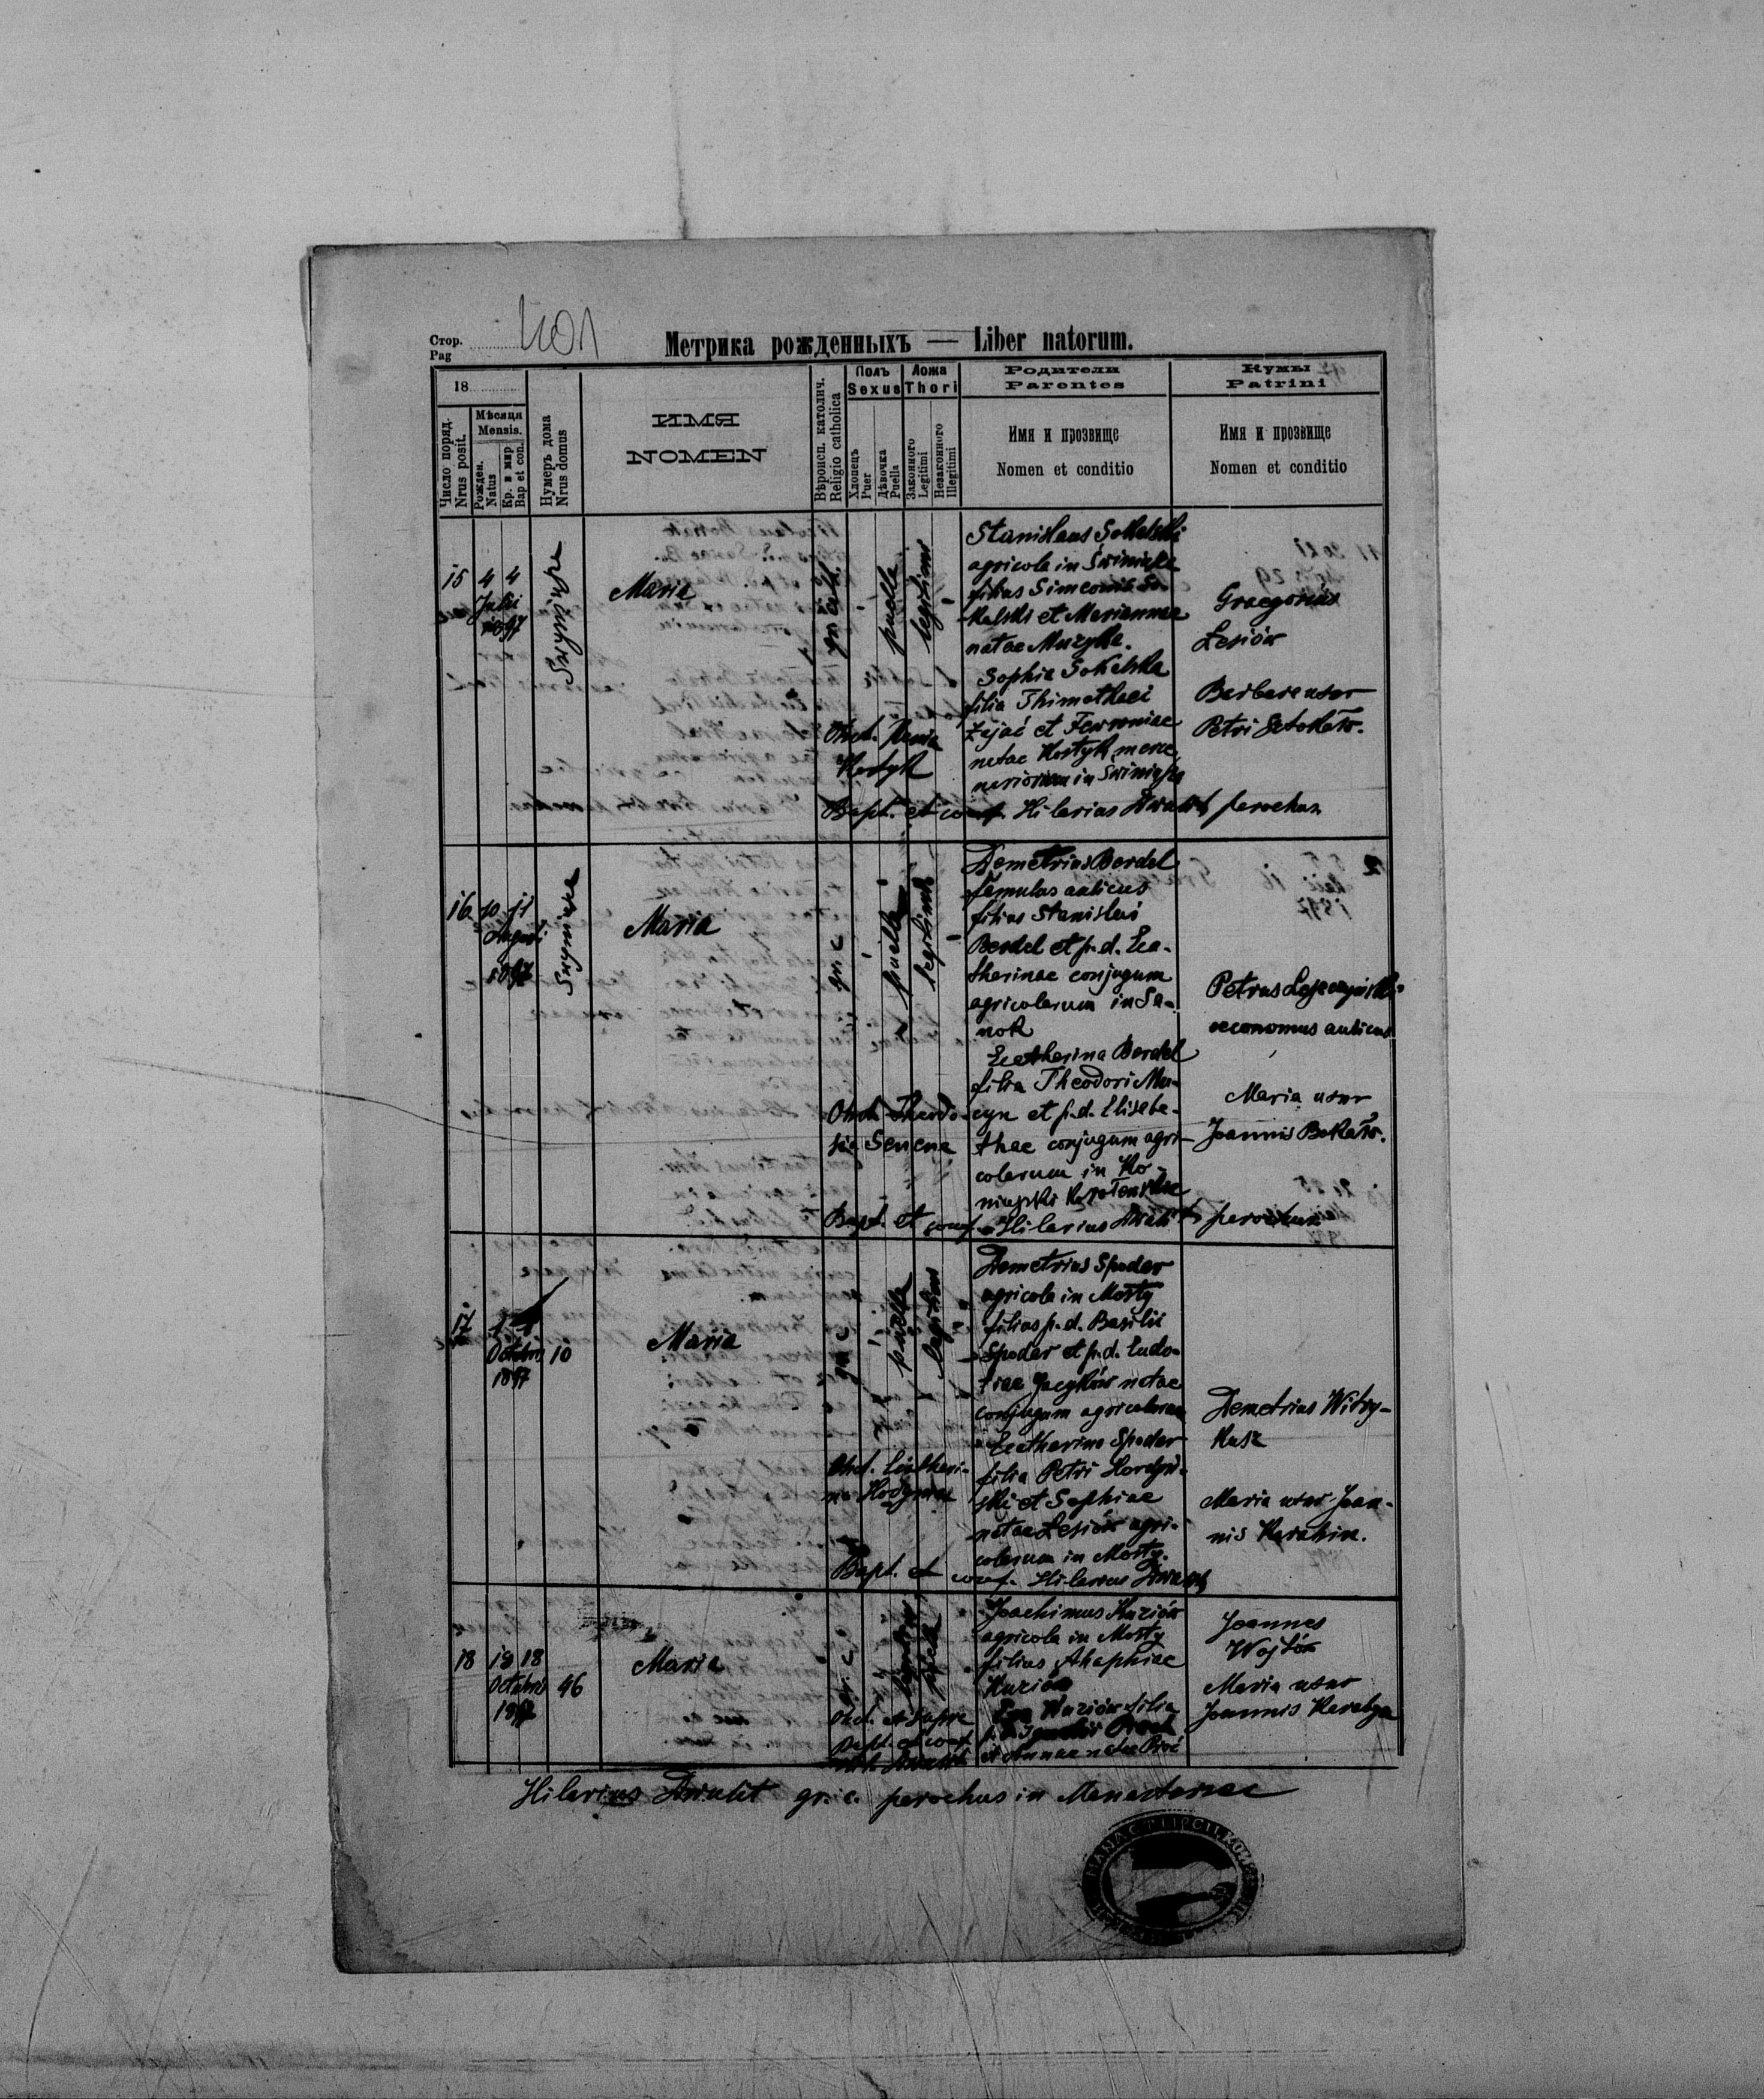 Стор.
Pag
401
Метрика рожденныхъ — Liber natorum.
18
Число поряд.
Nrus posit.
Мѣсяця
Mensis.
Рожден.
Natus
Кр. и мир
Bap et con.
Нумеръ дома
Nrus domus
ИМЯ
NOMEN
Вѣроисп. католич.
Religio catholica
Полъ
Sexus
Хлопецъ
Puer
Дѣвочка
Puella
Ложа
Thori
Законного
Legitimi
Незаконного
Illegitimi
Родители
Parentes
Имя и прозвище
Nomen et conditio
Кумы
Patrini
Имя и прозвище
Nomen et conditio
15 4 4
Julii
1897
Maria
gr. cath.
puella
legitimi
Stanislaus Sokalski
agricola in
filius Simeonis So-
kalski et Mariannae
natae Muzyka.
Sophia Sokalska
filia Thimothei
Zając et Fewroniae
natae Kostyk merce
nariorum in
Gregorius
Lesiów
Barbara uxor
Petri
Obst. Maria
Kostyk
Bapt. et conf. Hilarius parochus
16 10 11
Augusti
1897
Maria
gr. c
puella
legitimi
Demetrius Bardel
famulus aulicus
filius Stanislai
Bardel et p. d. Eca-
therinae conjugum
agricolarum in Sa-
nok
Ecatherina Bardel
filia Theodori Mu-
cyn et p. d. Elisabe-
thae conjugum agri-
colarum in Ko-
Petrus
oeconomus aulicus
Maria uxor
Joannis
Obst. Theodo-
sia Senena
Bapt. et conf. Hilarius parochus
17 1 1
Octobris 10
1897
Maria
gr. c
puella
legitimi
Demetrius Spodar
agricola in Mosty
filius p. d. Basilii
Spodar et p. d. Eudo-
xiae Jacyków natae
conjugum agricolarum
Ecatherina Spodar
filia Petri Hordyń-
ski et Sophiae
natae Lesiów agri-
colarum in Mosty.
Demetrius Witry-
kusz
Maria uxor Joan-
nis Karabin.
Obst. Catheri-
na
Bapt. et conf. Hilarius
18 18 18
Octobris 46
1897
Maria
gr. c.
legitimi
puella
Joachimus Kuziów
agricola in Mosty
filius Ahaphiae
Kuziów
Eva Kuziów filia
et Annae natae
Joannes
Wojtów
Maria uxor
Joannis
Obst. ut supra
Bapt. et conf.
Hilarius gr. c. parochus in